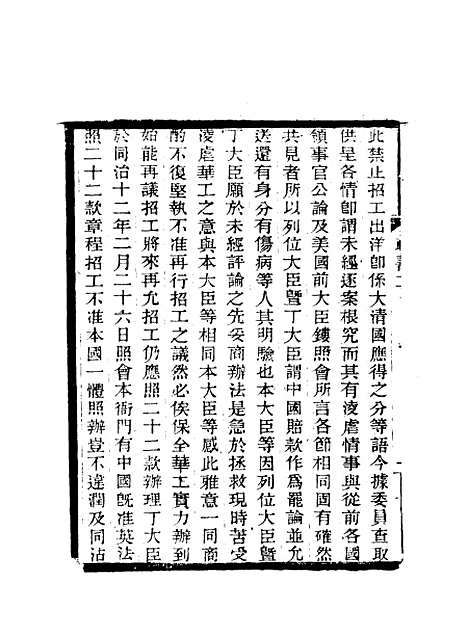 此禁止招工出洋卽係大清國應得之分等語今據委員查取
供呈各情卽謂未經逐案根究而其有凌虐情事與從前各國
領事官公論及美國前大臣鏤照會所言各節相同固有確然
共見者所以列位大臣曁丁大臣謂中國賠款作爲罷論並允
送還有身分有傷病等人其明驗也本大臣等因列位大臣曁
丁大臣願於未經評論之先妥商辦法是急於拯救現時苦受
凌虐華工之意與本大臣等相同本大臣等感此雅意一同商
酌不復堅執不准再行招工之議然必俟保全華工實力辦到
始能再議招工將來再允招工仍應照二十二款辦理丁大臣
於同治十二年二月二十六日照會本衙門有中國旣准英法
照二十二款章程招工不准本國一體照辦豈不違潤及同沾